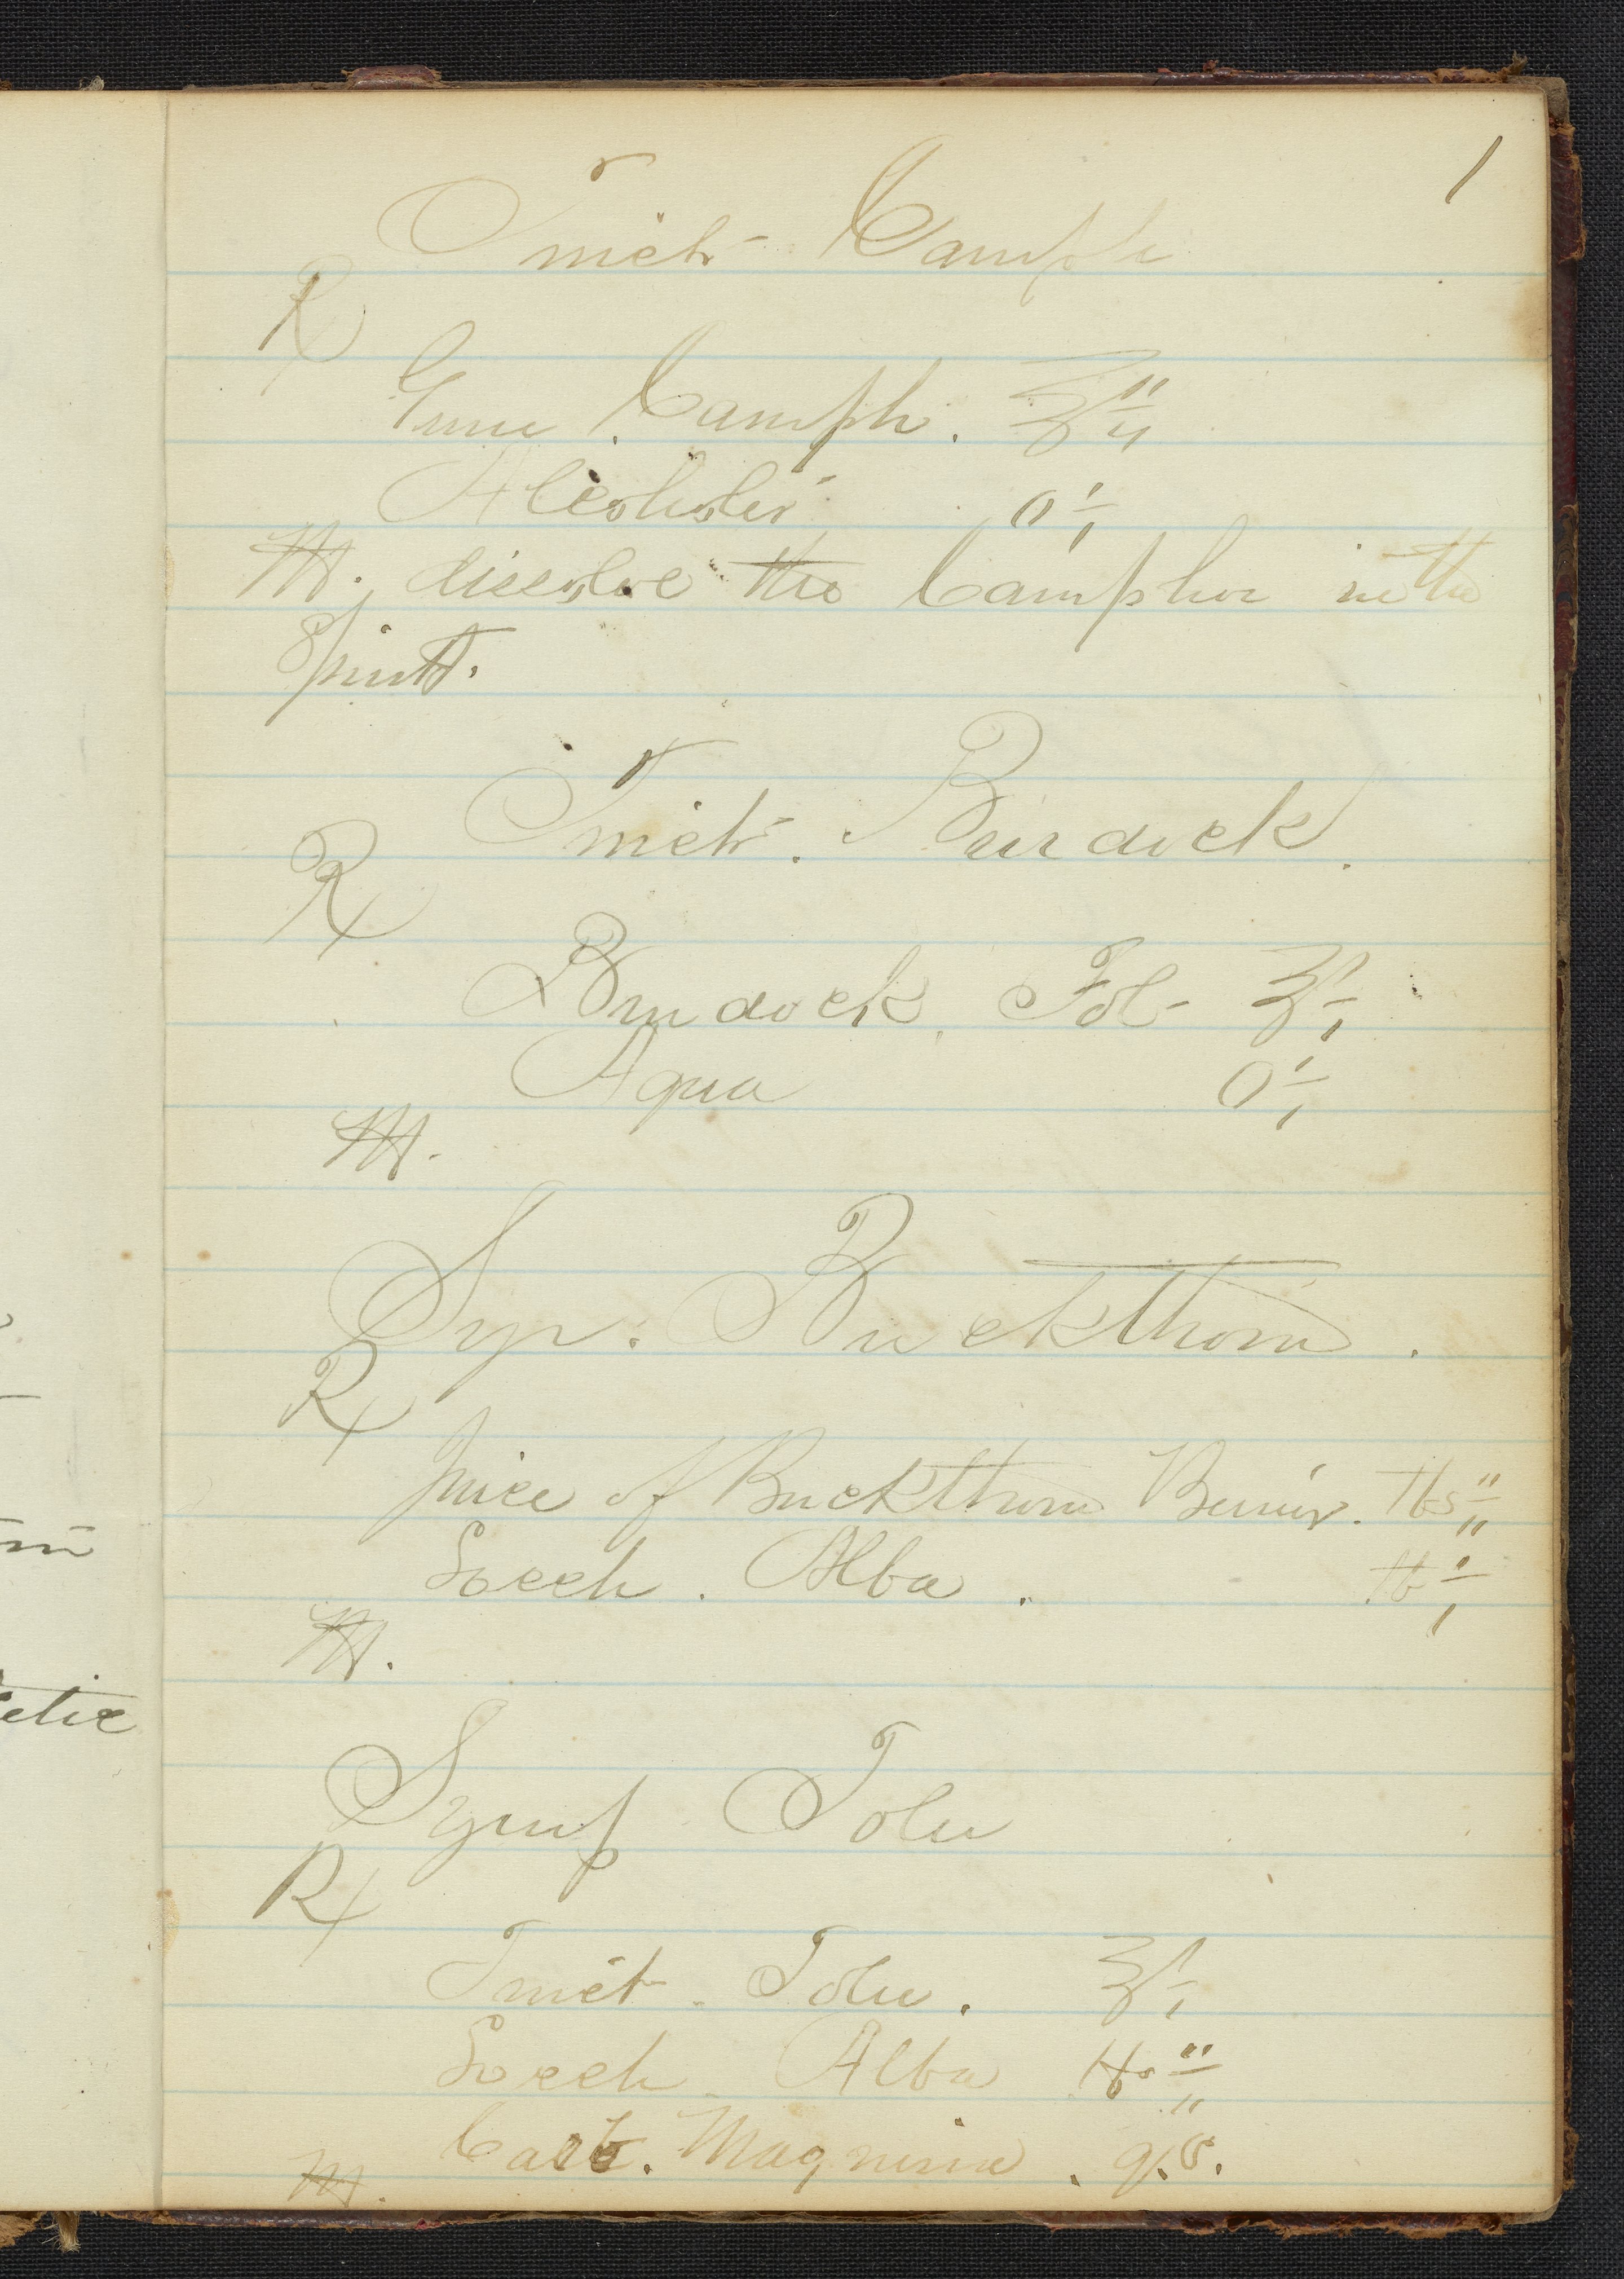 1
Tinct. Camph
℞
Gum Camph. ℥ii
Alcoholis O i
M. dissolve the Camphor in the
Spirit.
Tinct. Burdock.
℞
Burdock Fol- ℥i
Aqua O i
M.
Syr. Buckthorn.
℞
Juice of Buckthorn Berries. lbs ii
Sacch. Alba. lb i
M.
Syrup Tolu
℞
Tinct. Tolu. ℥i
Sacch. Alba lbs ii
Carb. Magnesia. q.s.
M.
etic